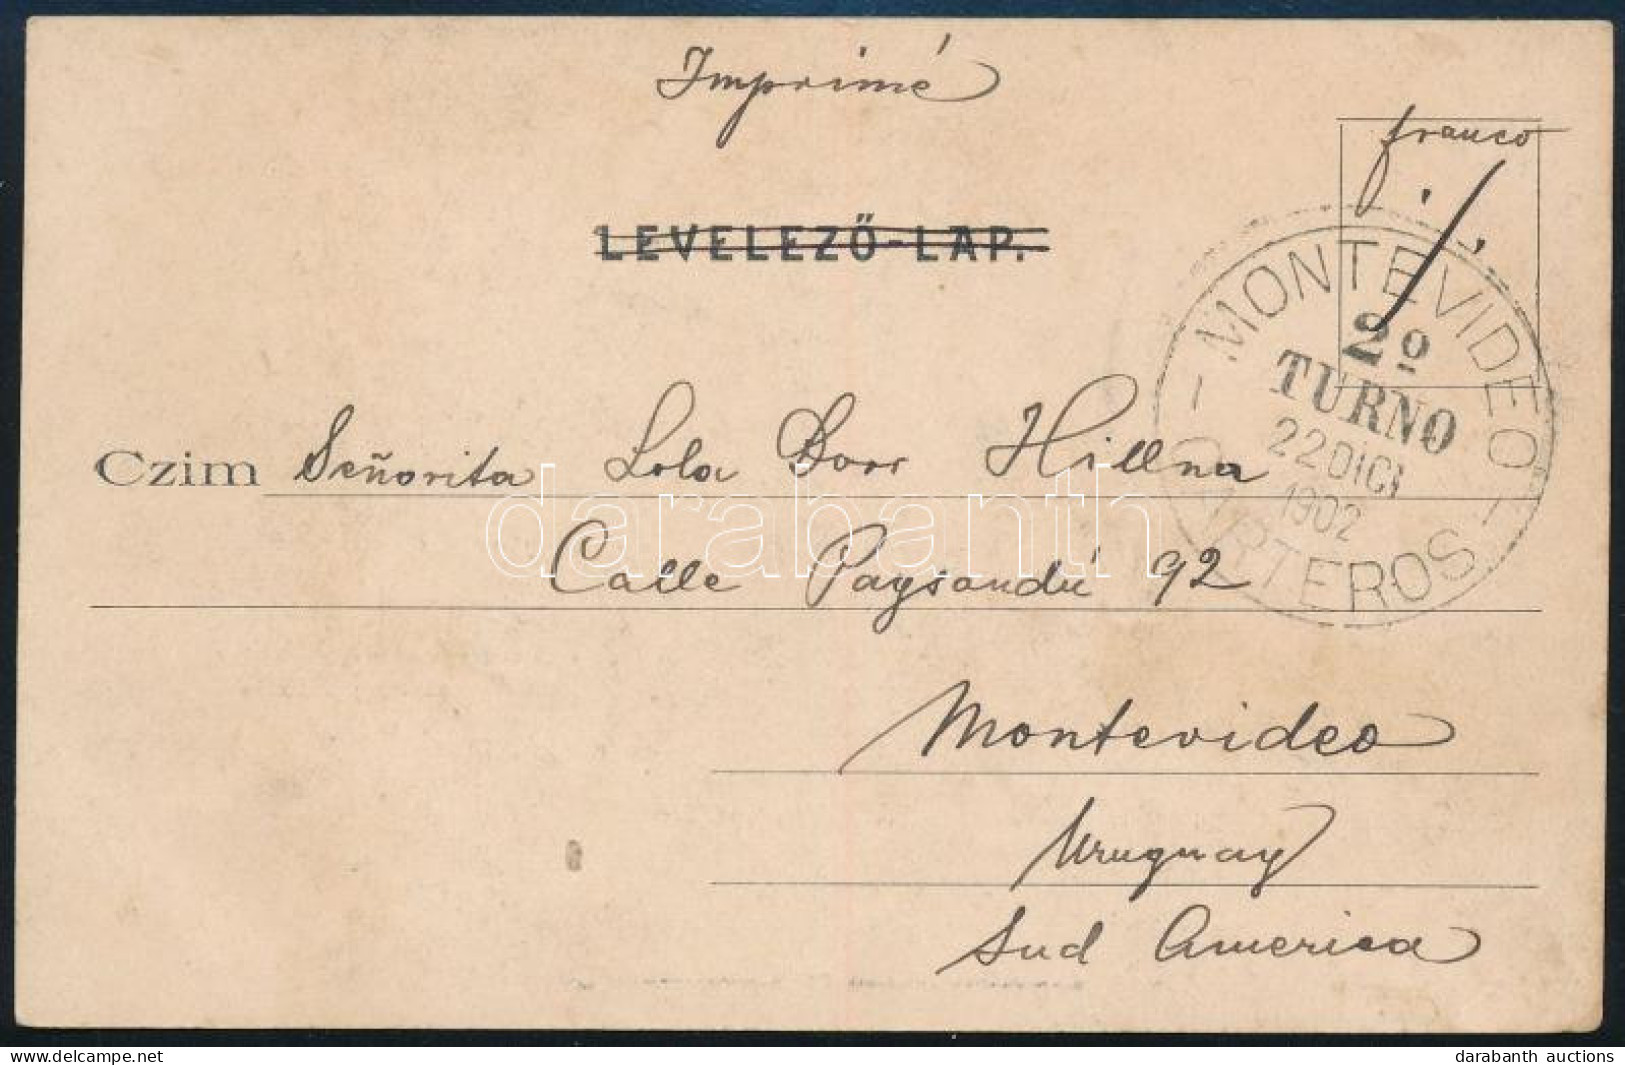 Imprimé
franco
./.
LEVELEZŐ-LAP.
MONTEVIDEO
2º
TURNO
22 DICI
1902
CARTEROS
Czim Señorita Lola Dorr Hillna
Calle Paysandú 92
Montevideo
Uruguay
Sud America
darabanth
darabanth auctions